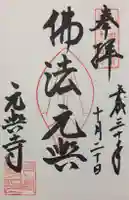 奉拝
平成三十年
十月二十日
佛法元興
元興寺